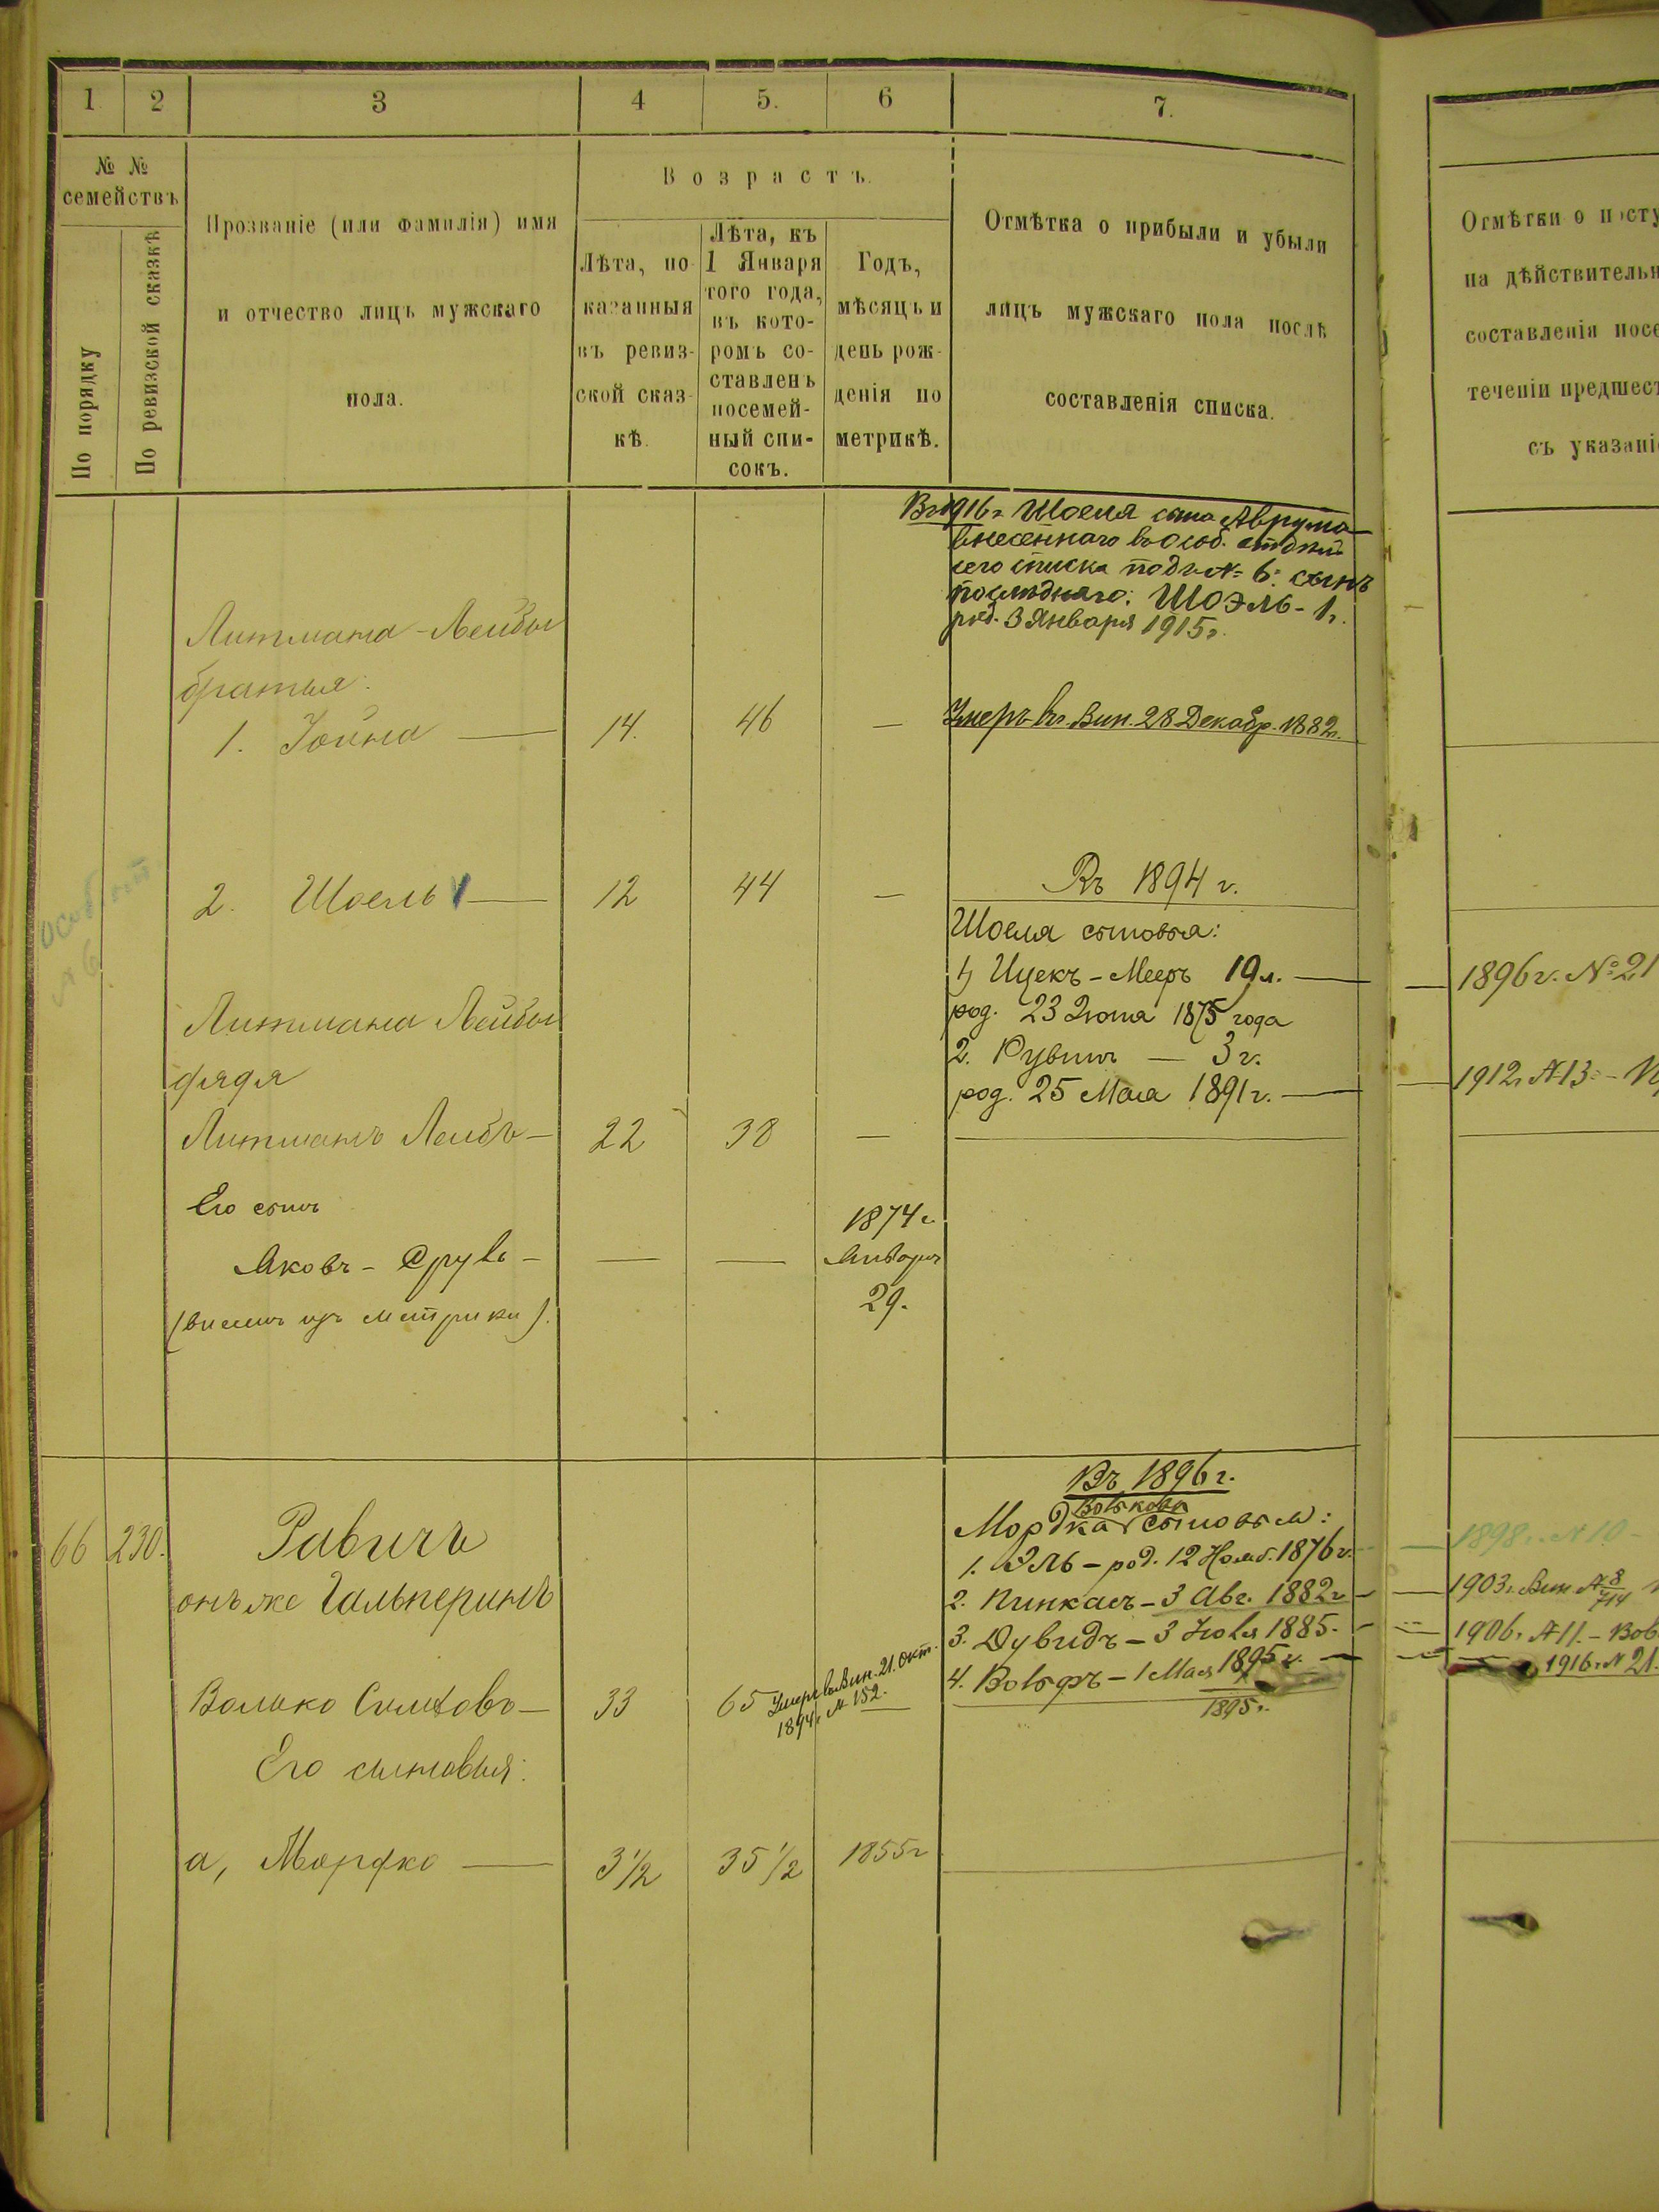 1. 2 3 4 5. 6 7.
№ №
семействъ
По порядку
По ревизской сказкѣ
Прозваніе (или фамилія) имя
и отчество лицъ мужскаго
пола.
Возрастъ.
Лѣта, по-
казанныя
въ ревиз-
ской сказ-
кѣ.
Лѣта, къ
1 Января
того года,
въ кото-
ромъ со-
ставленъ
посемей-
ный спи-
сокъ.
Годъ,
мѣсяцъ и
день рож-
денія по
метрикѣ.
Отмѣтка о прибыли и убыли
лицъ мужскаго пола послѣ
составленія списка.
Отмѣтки о посту
на дѣйствительн
составленія посе
теченіи предшест
съ указані
Въ 1916 г. Шоеля сына Аврума
внесеннаго въ особ.
сего списка подъ № 6: сынъ
послѣдняго: Шоэль - 1 г.
род. 3 Января 1915 г.
Литмана - Лейбы
братья:
1. Іойна — 14. 46 — Умеръ въ г. Вин. 28 Декабр. 1882 г.
особый
№ 6
2. Шоель — 12 44 —
Въ 1894 г.
Шоеля сыновья:
1) Ицекъ - Мееръ 19 л. — — 1896 г. № 21
род. 23 Іюня 1875 года
2. Рувинъ — 3 г.
род. 25 Мая 1891 г. — — 1912 г. № 13 -
Литмана Лейбы
дядя
Литманъ Лейбъ — 22 38 —
Его сынъ
Яковъ - Сруль — — —
1874 г.
Января
29.
(внесенъ изъ метрики).
66 230.
Равичъ
онъ же Гальперинъ
Волько Симховъ — 33 65 —
Умеръ въ Вин. 21. Окт.
1894 г. № 152.
Въ 1896 г.
Волькова
Мордка сыновья:
1. Эль - род. 12 Нояб. 1876 г. — 1898 г. № 10 -
2. Пинкасъ - 3 Авг. 1882 г. — 1903 г. Вин № 8/714
3. Дувидъ - 3 Іюля 1885. — 1906 г. № 11. - Вов
4. Вольфъ - 1 Мая 1895 г. — 1916 г. № 21.
1895 г.
Его сыновья:
а, Мордко — 3 1/2 35 1/2 1855 г